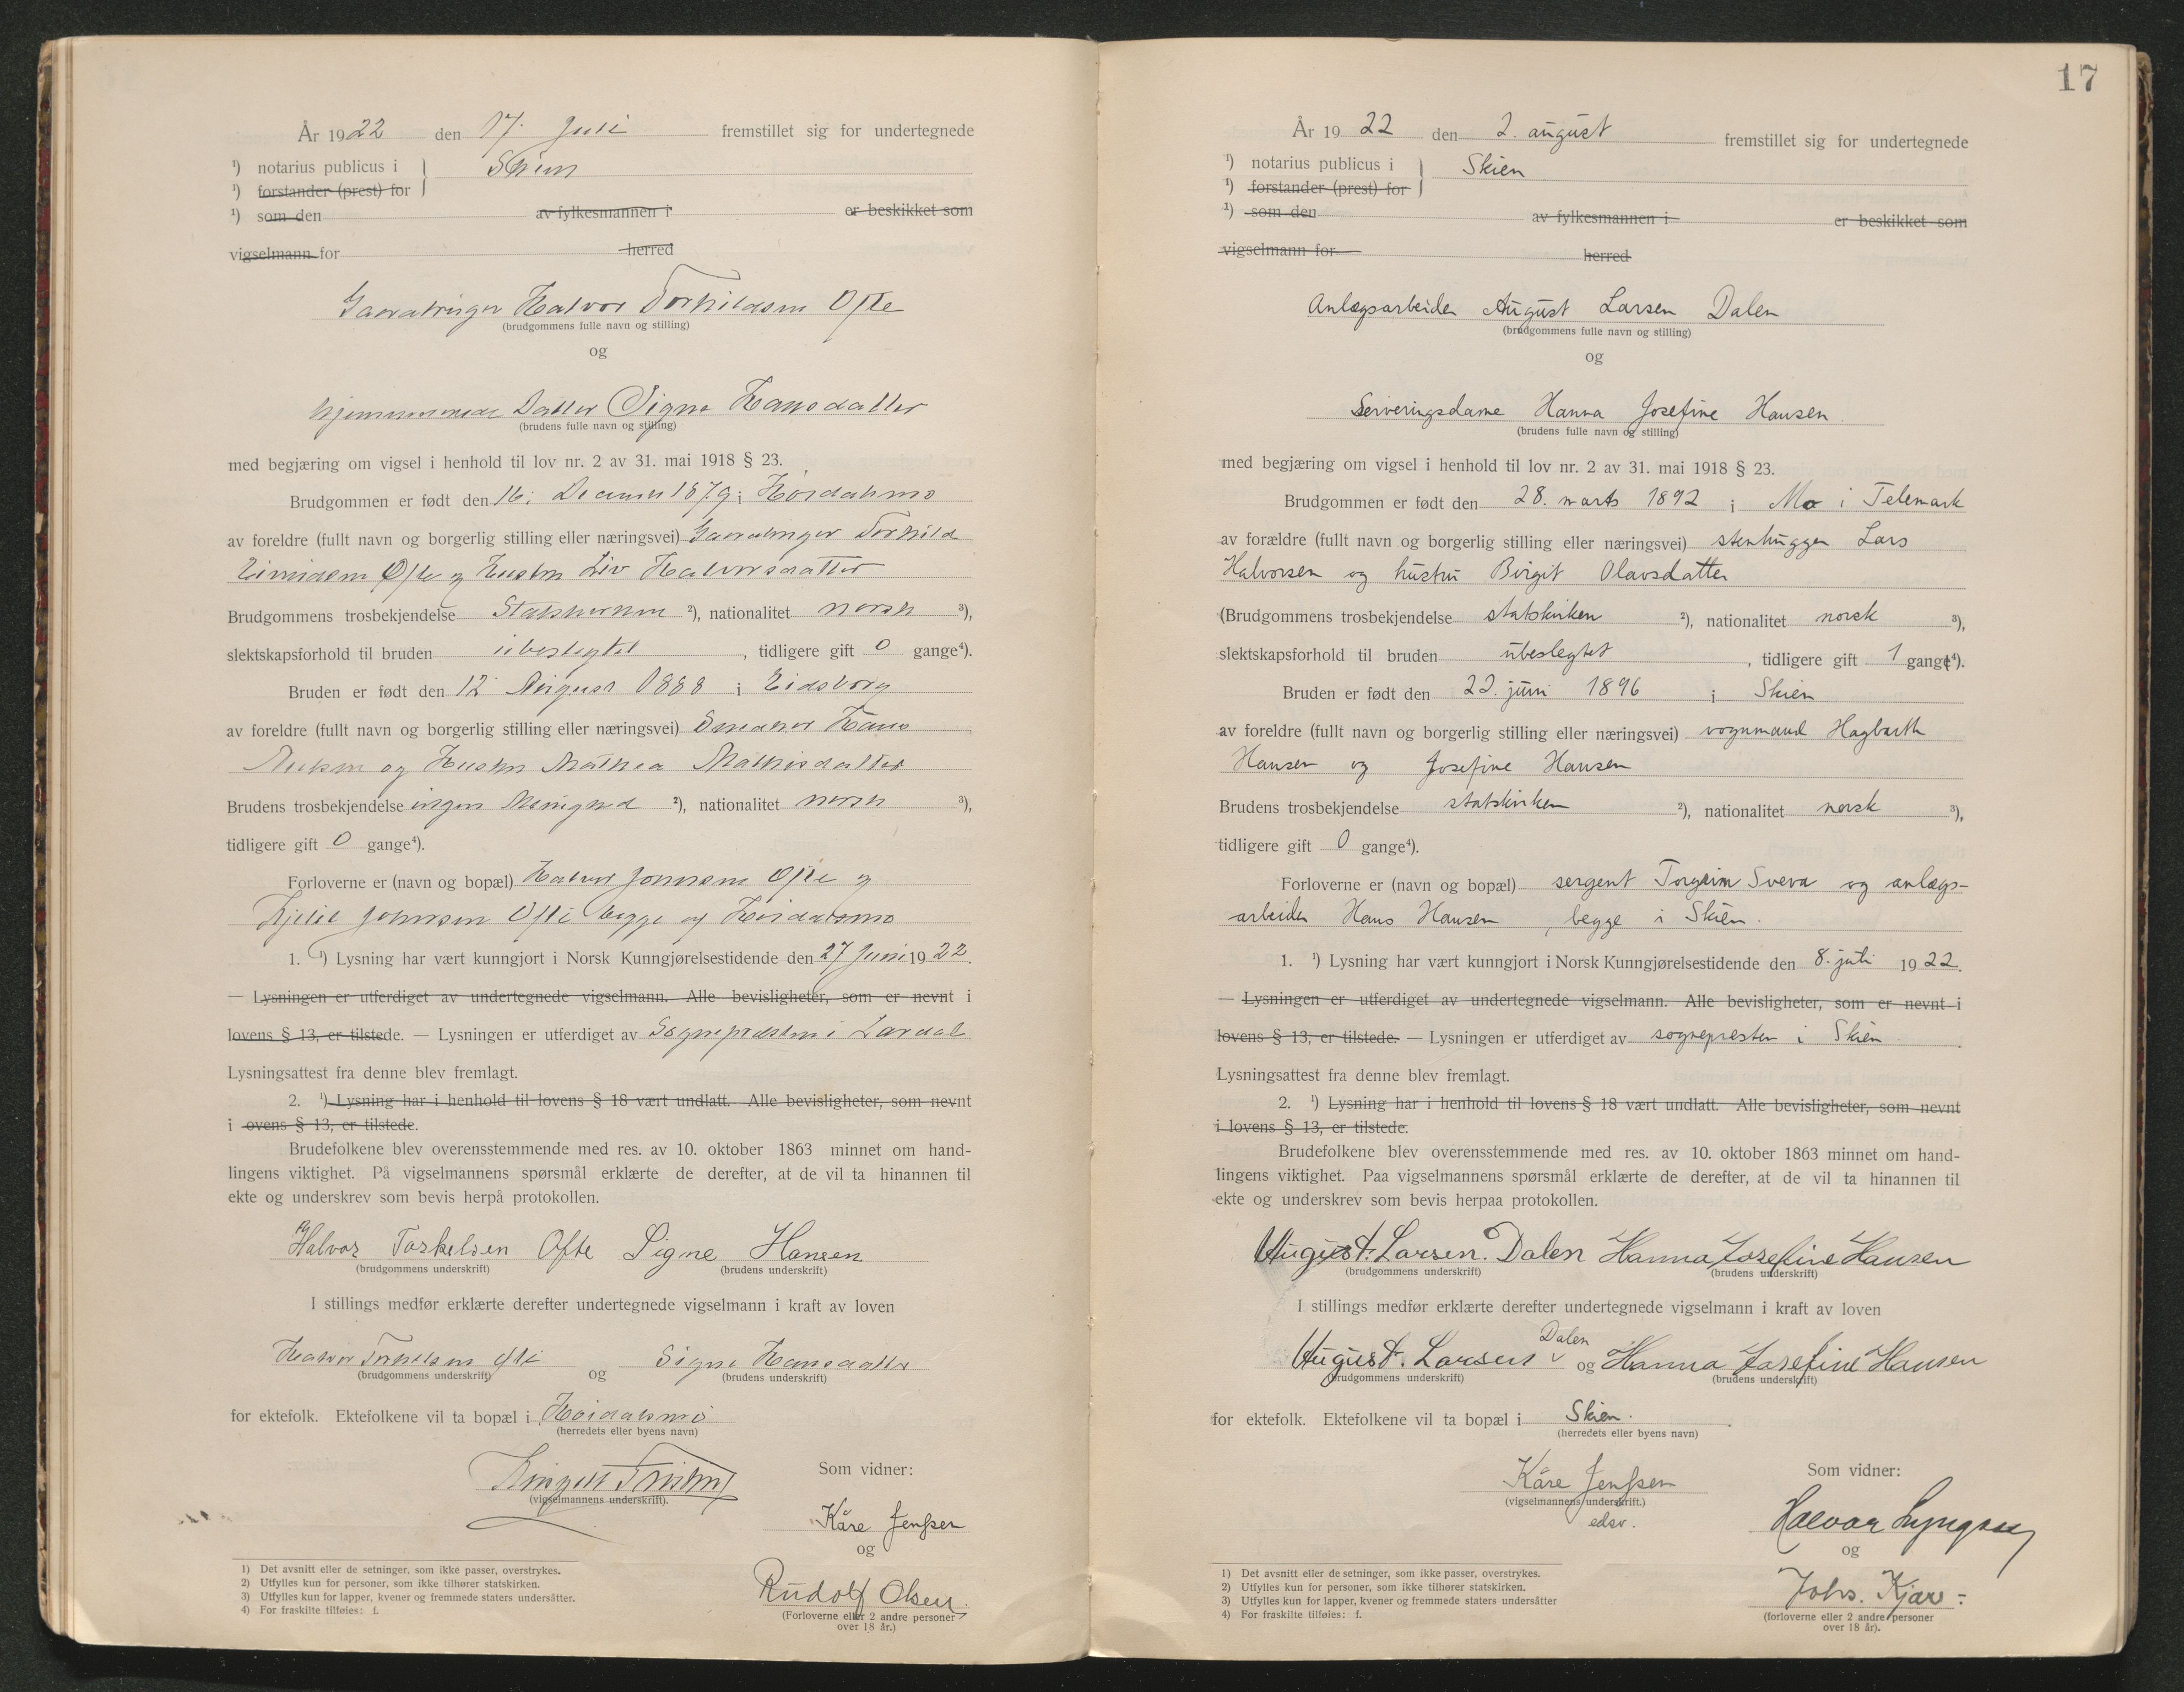 År 1922 den 17. Juli fremstillet sig for undertegnede
¹) notarius publicus i Skien
¹) forstander (prest) for
¹) som den av fylkesmannen i er beskikket som
vigselmann for herred
Gaardbruger Halvor Torkildsen Ofte
(brudgommens fulle navn og stilling)
og
hjemmeværende Datter Signe Hansdatter
(brudens fulle navn og stilling)
med begjæring om vigsel i henhold til lov nr. 2 av 31. mai 1918 § 23.
Brudgommen er født den 16. December 1879 i Høidalsmo
av foreldre (fullt navn og borgerlig stilling eller næringsvei) Gaardbruger Torkild
Eivindsen Ofte og Hustru Liv Halvorsdatter
Brudgommens trosbekjendelse Statskirken ²), nationalitet norsk ³),
slektskapsforhold til bruden ubeslegtet, tidligere gift 0 gange⁴).
Bruden er født den 12 August 1888 i Eidsborg
av foreldre (fullt navn og borgerlig stilling eller næringsvei) Smeder Hans
og Hustru Mathea Mathisdatter
Brudens trosbekjendelse ingen Menighed ²), nationalitet norsk ³),
tidligere gift 0 gange⁴).
Forloverne er (navn og bopæl) Halvor Johnsen Ofte og
Kjetil Johnsen Ofte begge af Høidalsmo
1. ¹) Lysning har vært kunngjort i Norsk Kunngjørelsestidende den 27 Juni 1922.
— Lysningen er utferdiget av undertegnede vigselmann. Alle bevisligheter, som er nevnt i
lovens § 13, er tilstede. — Lysningen er utferdiget av Sognepresten i Lardal
Lysningsattest fra denne blev fremlagt.
2. ¹) Lysning har i henhold til lovens § 18 vært undlatt. Alle bevisligheter, som nevnt
i ovens § 13, er tilstede.
Brudefolkene blev overensstemmende med res. av 10. oktober 1863 minnet om hand-
lingens viktighet. På vigselmannens spørsmål erklærte de derefter, at de vil ta hinannen til
ekte og underskrev som bevis herpå protokollen.
Halvor Torkelsen Ofte Signe Hansen
(brudgommens underskrift) (brudens underskrift)
I stillings medfør erklærte derefter undertegnede vigselmann i kraft av loven
Halvor Torkildsen Ofte og Signe Hansdatter
(brudgommens underskrift) (brudens underskrift)
for ektefolk. Ektefolkene vil ta bopæl i Høidalsmo
(herredets eller byens navn)
(vigselmannens underskrift).
Som vidner:
Kåre Jenssen
og
Rudolf Olsen.
(Forloverne eller 2 andre personer
over 18 år.)
1) Det avsnitt eller de setninger, som ikke passer, overstrykes.
2) Utfylles kun for personer, som ikke tilhører statskirken.
3) Utfylles kun for lapper, kvener og fremmede staters undersåtter.
4) For fraskilte tilføies: f.
17
År 1922 den 2. august fremstillet sig for undertegnede
¹) notarius publicus i Skien
¹) forstander (prest) for
¹) som den av fylkesmannen i er beskikket som
vigselmann for herred
Anlægsarbeider August Larsen Dalen
(brudgommens fulle navn og stilling)
og
Serveringsdame Hanna Josefine Hansen.
(brudens fulle navn og stilling)
med begjæring om vigsel i henhold til lov nr. 2 av 31. mai 1918 § 23.
Brudgommen er født den 28. marts 1892 i Mo i Telemark
av forældre (fullt navn og borgerlig stilling eller næringsvei) stenhugger Lars
Halvorsen og hustru Birgit Olavsdatter
(Brudgommens trosbekjendelse statskirken ²), nationalitet norsk ³),
slektskapsforhold til bruden ubeslegtet, tidligere gift 1 gange⁴).
Bruden er født den 22. juni 1896 i Skien
av foreldre (fullt navn og borgerlig stilling eller næringsvei) vognmand Hagbarth
Hansen og Josefine Hansen
Brudens trosbekjendelse statskirken ²), nationalitet norsk ³),
tidligere gift 0 gange⁴).
Forloverne er (navn og bopæl) sergent Torgrim Sveva og anlægs-
arbeider Hans Hansen, begge i Skien.
1. ¹) Lysning har vært kunngjort i Norsk Kunngjørelsestidende den 8. juli 1922.
— Lysningen er utferdiget av undertegnede vigselmann. Alle bevisligheter, som er nevnt i
lovens § 13, er tilstede. — Lysningen er utferdiget av sognepresten i Skien.
Lysningsattest fra denne blev fremlagt.
2. ¹) Lysning har i henhold til lovens § 18 vært undlatt. Alle bevisligheter, som nevnt
i lovens § 13, er tilstede.
Brudefolkene blev overensstemmende med res. av 10. oktober 1863 minnet om hand-
lingens viktighet. Paa vigselmannens spørsmål erklærte de derefter, at de vil ta hinannen til
ekte og underskrev som bevis herpaa protokollen.
August. Larsen. Dalen Hanna Josefine Hansen
(brudgommens underskrift) (brudens underskrift)
I stillings medfør erklærte derefter undertegnede vigselmann i kraft av loven
August. Larsen Dalen og Hanna Josefine Hansen
(brudgommens underskrift) (brudens underskrift)
for ektefolk. Ektefolkene vil ta bopæl i Skien.
(herredets eller byens navn)
Kåre Jenssen
(vigselmannens underskrift.)
edsv.
Som vidner:
Halvor Lyngaas
og
Johs. Kjær
(forloverne eller 2 andre personer
over 18 år).
1) Det avsnitt eller de setninger, som ikke passer, overstrykes.
2) Utfylles kun for personer, som ikke tilhører statskirken.
3) Utfylles kun for lapper, kvener og fremmede staters undersåtter
4) For fraskilte tilføies: f.